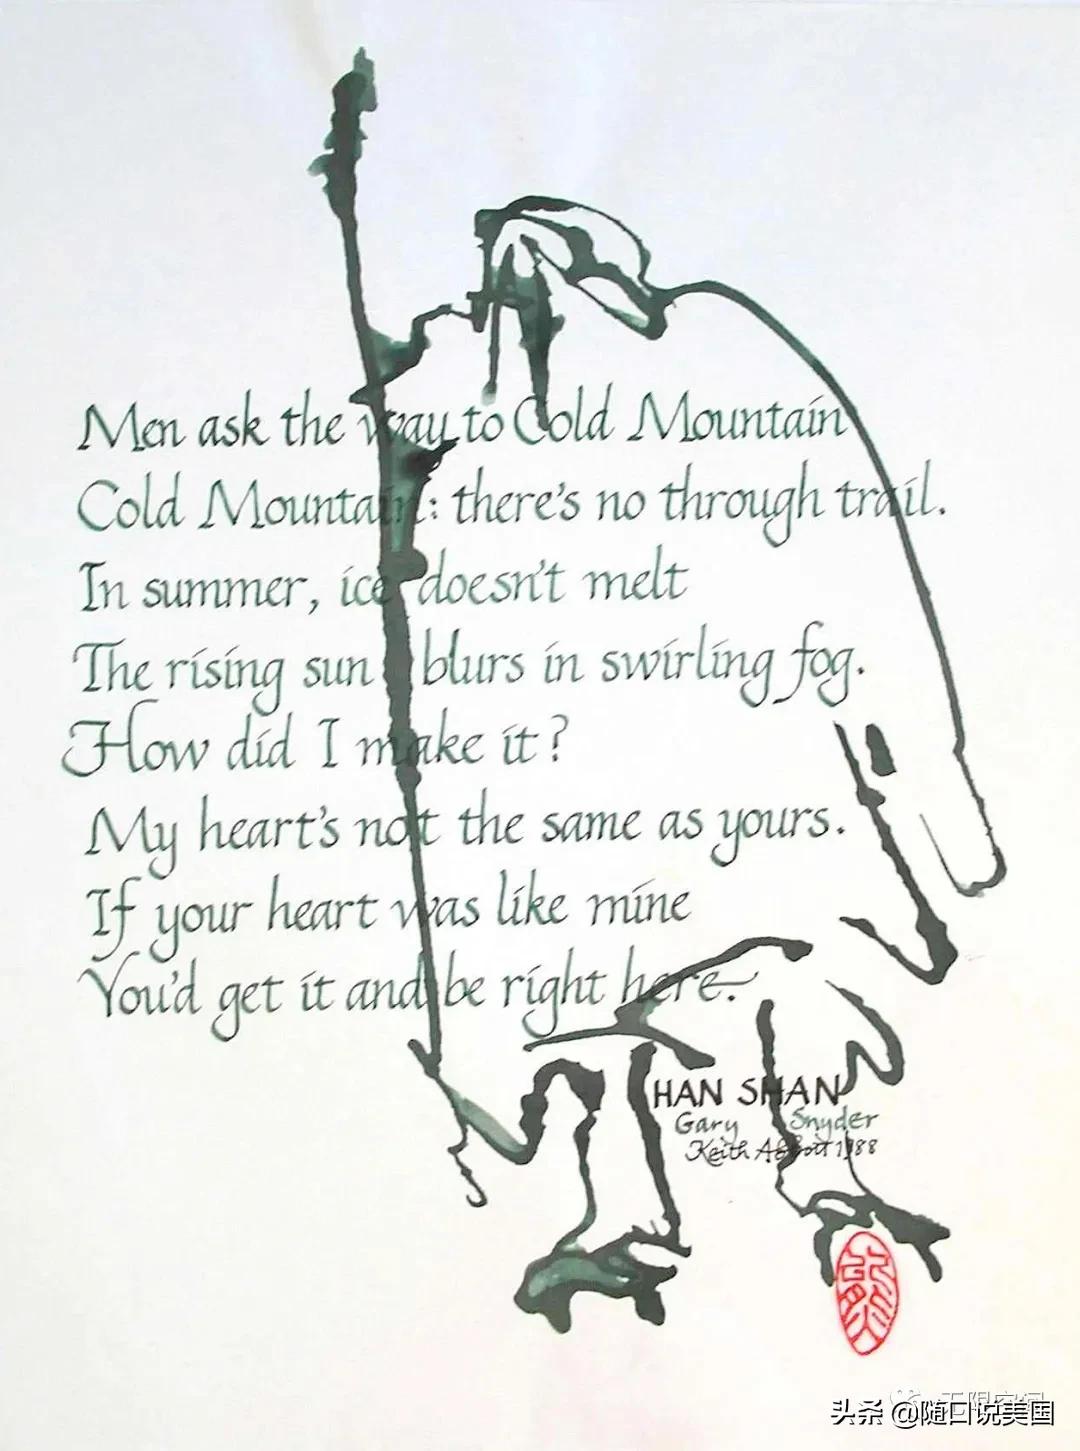 Men ask the way to Cold Mountain
Cold Mountain: there's no through trail.
In summer, ice doesn't melt
The rising sun blurs in swirling fog.
How did I make it?
My heart's not the same as yours.
If your heart was like mine
You'd get it and be right here.
HAN SHAN
Gary Snyder
Keith Abbott 1988
无限空间
头条 @随口说美国